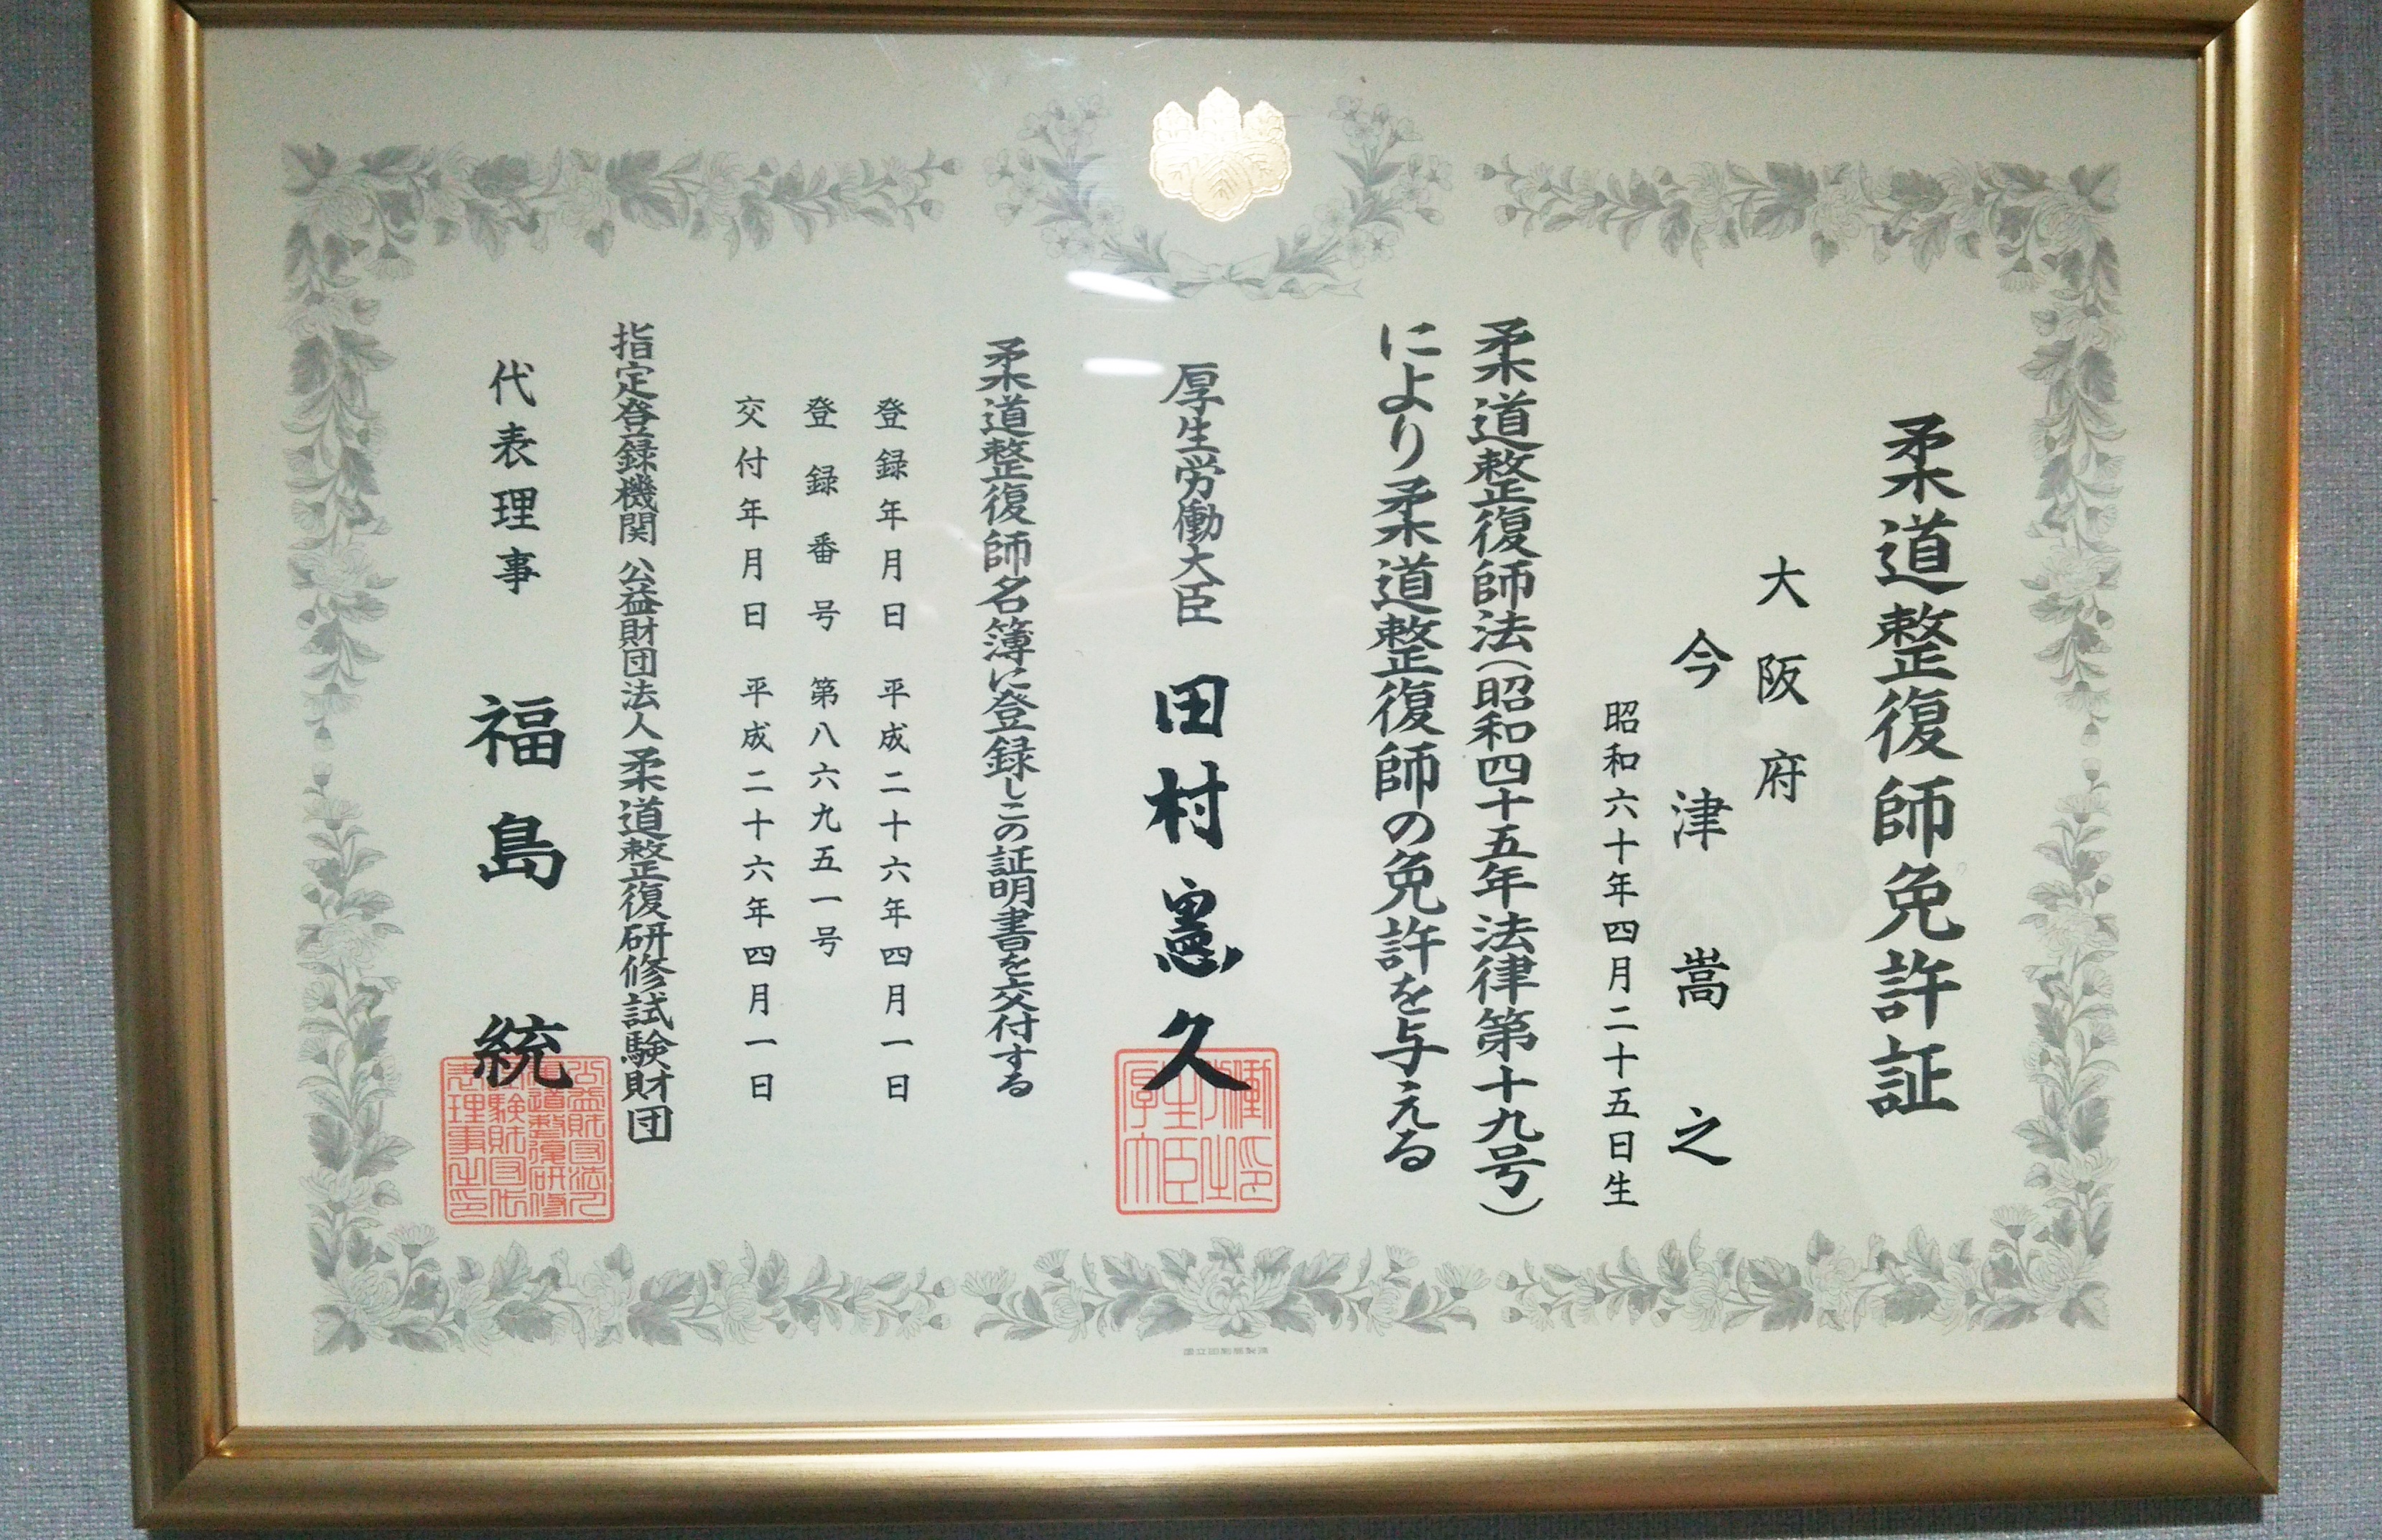 柔道整復師免許証
大阪府
今津嵩之
昭和六十年四月二十五日生
柔道整復師法(昭和四十五年法律第十九号)
により柔道整復師の免許を与える
厚生労働大臣 田村憲久
柔道整復師名簿に登録しこの証明書を交付する
登録年月日 平成二十六年四月一日
登録番号 第八六九五一号
交付年月日 平成二十六年四月一日
指定登録機関 公益財団法人 柔道整復研修試験財団
代表理事 福島統